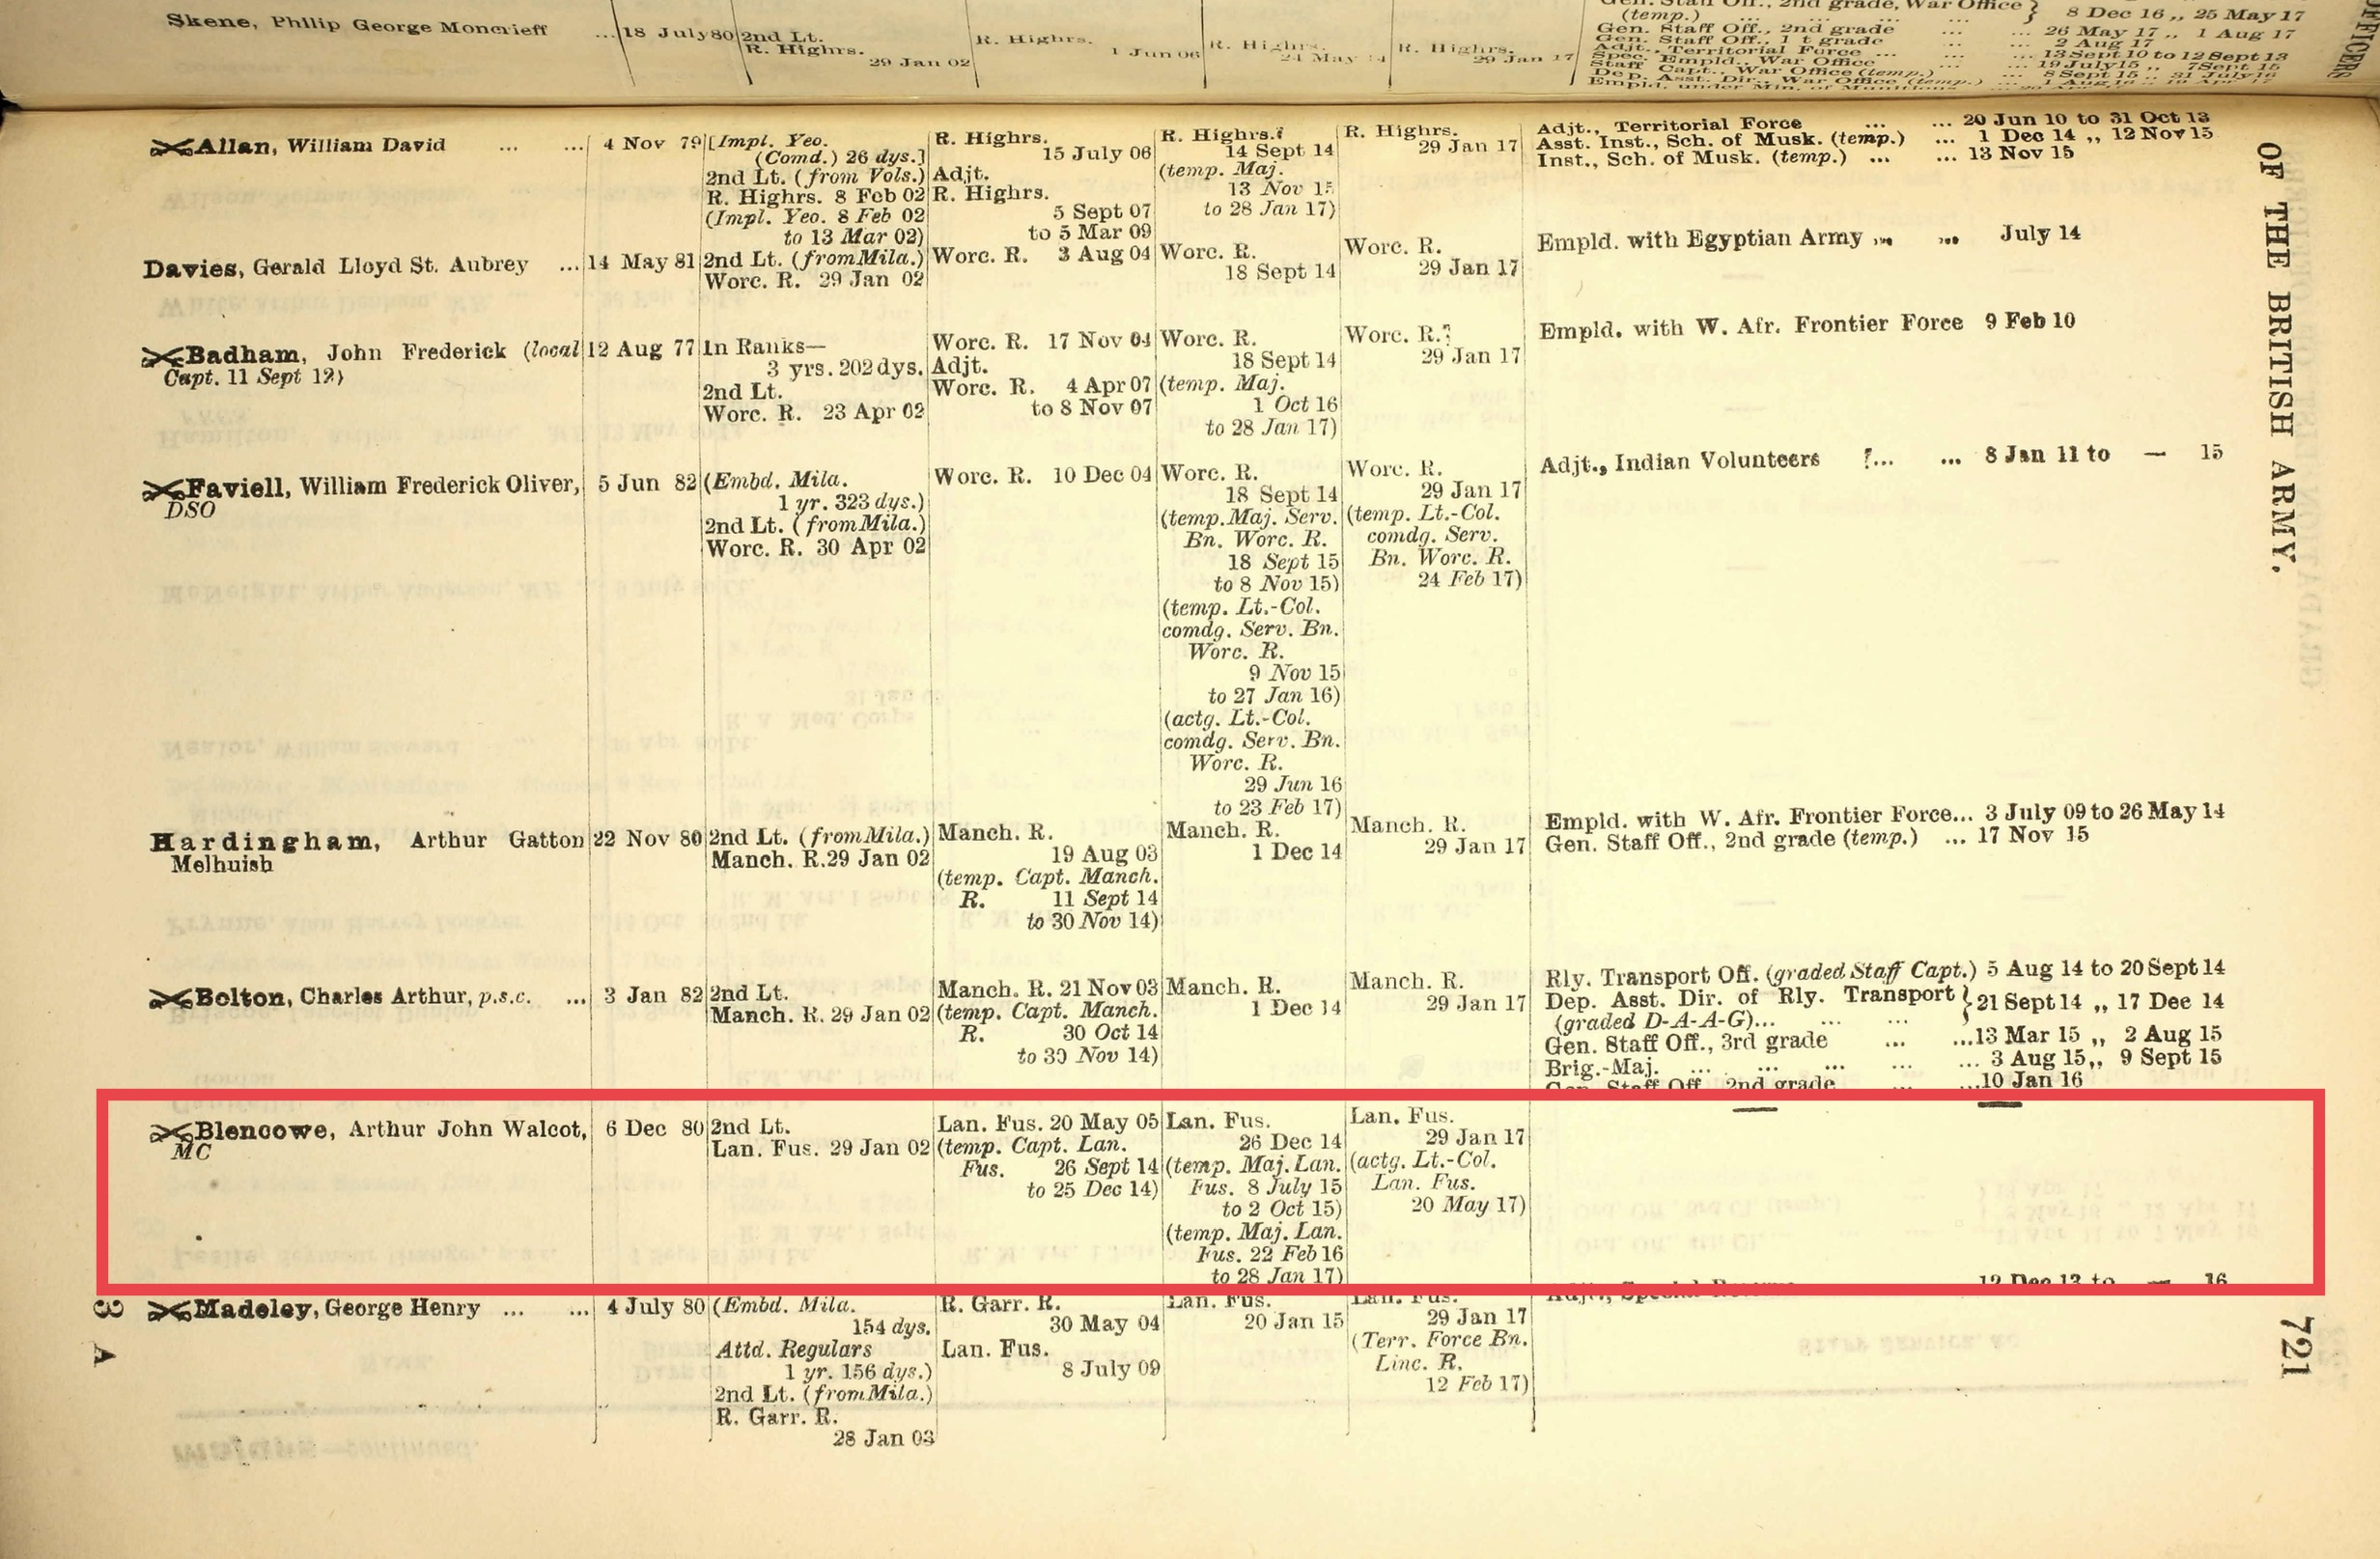 Skene, Philip George Moncrieff ... 18 July 80 2nd Lt. R. Highrs. 29 Jan 02 R. Highrs. 1 Jun 06 R. Highrs. 24 May 14 R. Highrs. 29 Jan 17
Gen. Staff Off., 2nd grade, War Office (temp.) ... 8 Dec 16 ,, 25 May 17
Gen. Staff Off., 2nd grade ... 26 May 17 ,, 1 Aug 17
Gen. Staff Off., 1 t grade ... 2 Aug 17
Adjt., Territorial Force ... 13 Sept 10 to 12 Sept 13
Spec. Empld., War Office ... 19 July 15 ,, 7 Sept 15
Staff Capt., War Office (temp.) ... 8 Sept 15 ,, 31 July 16
Dep. Asst. Dir., War Office (temp.)
Empld. under Min. of Munitions
OFFICERS
OF THE BRITISH ARMY.
Allan, William David ... ... 4 Nov 79
[Impl. Yeo.
(Comd.) 26 dys.]
2nd Lt. (from Vols.)
R. Highrs. 8 Feb 02
(Impl. Yeo. 8 Feb 02
to 13 Mar 02)
R. Highrs.
15 July 06
Adjt.
R. Highrs.
5 Sept 07
to 5 Mar 09
R. Highrs.
14 Sept 14
(temp. Maj.
13 Nov 15
to 28 Jan 17)
R. Highrs.
29 Jan 17
Adjt., Territorial Force ... ... 20 Jun 10 to 31 Oct 13
Asst. Inst., Sch. of Musk. (temp.) ... 1 Dec 14 ,, 12 Nov 15
Inst., Sch. of Musk. (temp.) ... ... 13 Nov 15
Davies, Gerald Lloyd St. Aubrey ... 14 May 81
2nd Lt. (from Mila.)
Worc. R. 29 Jan 02
Worc. R. 3 Aug 04
Worc. R.
18 Sept 14
Worc. R.
29 Jan 17
Empld. with Egyptian Army ... ... July 14
Badham, John Frederick (local 12 Aug 77
Capt. 11 Sept 12)
In Ranks—
3 yrs. 202 dys.
2nd Lt.
Worc. R. 23 Apr 02
Worc. R. 17 Nov 04
Adjt.
Worc. R. 4 Apr 07
to 8 Nov 07
Worc. R.
18 Sept 14
(temp. Maj.
1 Oct 16
to 28 Jan 17)
Worc. R.
29 Jan 17
Empld. with W. Afr. Frontier Force 9 Feb 10
Faviell, William Frederick Oliver, 5 Jun 82
DSO
(Embd. Mila.
1 yr. 323 dys.)
2nd Lt. (from Mila.)
Worc. R. 30 Apr 02
Worc. R. 10 Dec 04
Worc. R.
18 Sept 14
(temp. Maj. Serv.
Bn. Worc. R.
18 Sept 15
to 8 Nov 15)
(temp. Lt.-Col.
comdg. Serv. Bn.
Worc. R.
9 Nov 15
to 27 Jan 16)
(actg. Lt.-Col.
comdg. Serv. Bn.
Worc. R.
29 Jun 16
to 23 Feb 17)
Worc. R.
29 Jan 17
(temp. Lt.-Col.
comdg. Serv.
Bn. Worc. R.
24 Feb 17)
Adjt., Indian Volunteers ... ... 8 Jan 11 to — 15
Hardingham, Arthur Gatton 22 Nov 80
Melhuish
2nd Lt. (from Mila.)
Manch. R. 29 Jan 02
Manch. R.
19 Aug 03
(temp. Capt. Manch.
R. 11 Sept 14
to 30 Nov 14)
Manch. R.
1 Dec 14
Manch. R.
29 Jan 17
Empld. with W. Afr. Frontier Force... 3 July 09 to 26 May 14
Gen. Staff Off., 2nd grade (temp.) ... 17 Nov 15
Bolton, Charles Arthur, p.s.c. ... 3 Jan 82
2nd Lt.
Manch. R. 29 Jan 02
Manch. R. 21 Nov 03
(temp. Capt. Manch.
R. 30 Oct 14
to 30 Nov 14)
Manch. R.
1 Dec 14
Manch. R.
29 Jan 17
Rly. Transport Off. (graded Staff Capt.) 5 Aug 14 to 20 Sept 14
Dep. Asst. Dir. of Rly. Transport } 21 Sept 14 ,, 17 Dec 14
(graded D-A-A-G)... ... ...
Gen. Staff Off., 3rd grade ... ...13 Mar 15 ,, 2 Aug 15
Brig.-Maj. ... ... ... ... ... 3 Aug 15 ,, 9 Sept 15
Gen. Staff Off. 2nd grade ... ...10 Jan 16
Blencowe, Arthur John Walcot, 6 Dec 80
MC
2nd Lt.
Lan. Fus. 29 Jan 02
Lan. Fus. 20 May 05
(temp. Capt. Lan.
Fus. 26 Sept 14
to 25 Dec 14)
Lan. Fus.
26 Dec 14
(temp. Maj. Lan.
Fus. 8 July 15
to 2 Oct 15)
(temp. Maj. Lan.
Fus. 22 Feb 16
to 28 Jan 17)
Lan. Fus.
29 Jan 17
(actg. Lt.-Col.
Lan. Fus.
20 May 17)
— —
Madeley, George Henry ... ... 4 July 80
(Embd. Mila.
154 dys.
Attd. Regulars
1 yr. 156 dys.)
2nd Lt. (from Mila.)
R. Garr. R.
28 Jan 03
R. Garr. R.
30 May 04
Lan. Fus.
8 July 09
Lan. Fus.
20 Jan 15
Lan. Fus.
29 Jan 17
(Terr. Force Bn.
Linc. R.
12 Feb 17)
Adjt., Special Reserve 12 Dec 13 to — 16
3 A
721